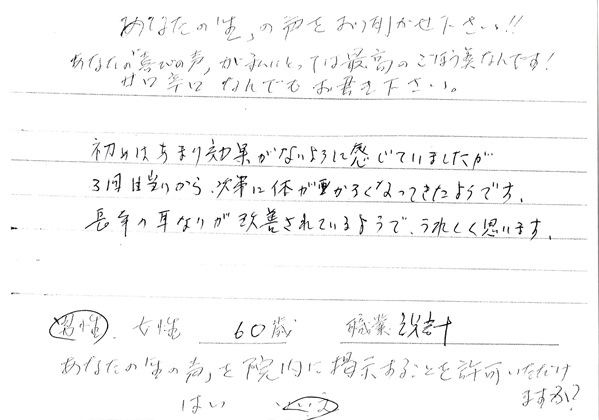 あなたの「生」の声をお聞かせ下さい!!
あなたの「喜びの声」が私にとっては最高のごほう美なんです!
甘口辛口なんでもお書き下さい。
初めはあまり効果がないように感じていましたが
3回目当りから、次第に体が軽くなってきたようです。
長年の耳なりが改善されているようで、うれしく思います。
男性. 女性 60歳 職業 設計
あなたの「生の声」を院内に掲示することを許可いただけ
ますか?
はい いいえ